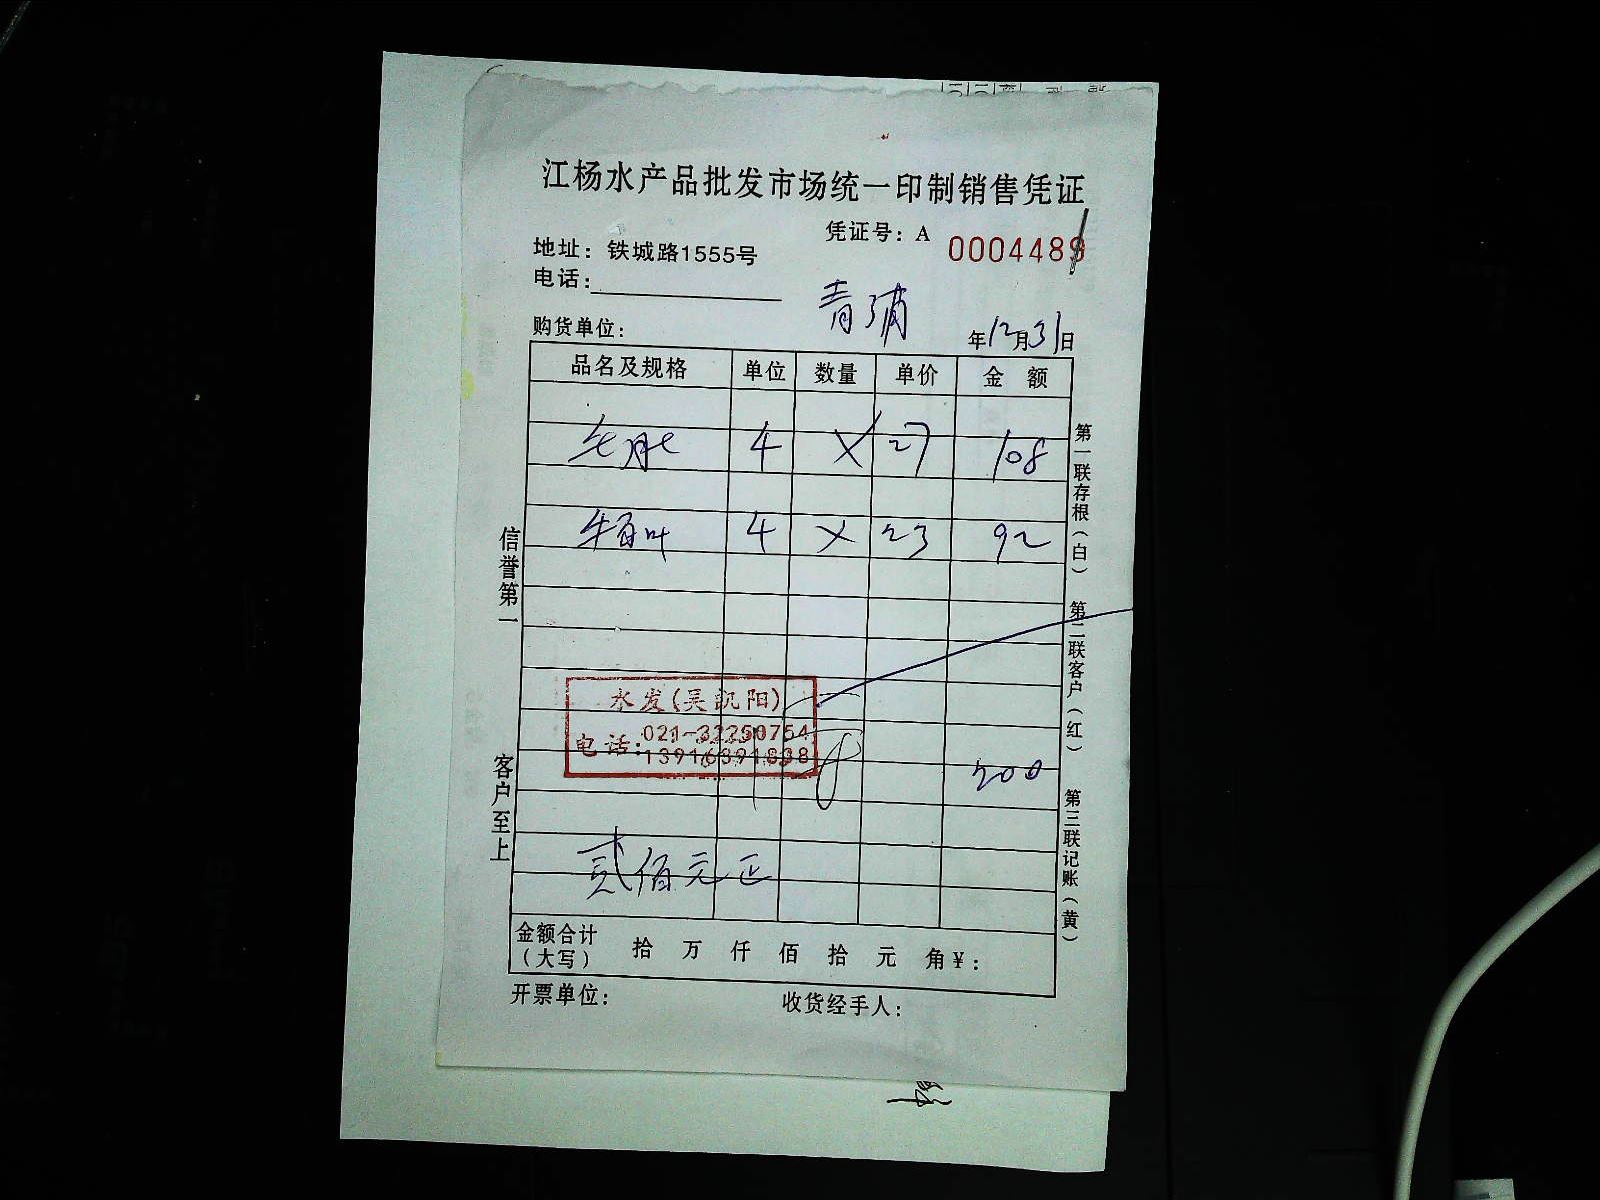 江杨水产品批发市场统一印制销售凭证
凭证号：A 0004489
地址：铁城路1555号
电话：
青浦
购货单位： 年12月31日
品名及规格 单位 数量 单价 金 额
毛肚 4 X 27 108
牛百叶 4 X 23 92
水发(吴凯阳)
电话：021-32250754
13916391838
200
贰佰元正
金额合计（大写） 拾 万 仟 佰 拾 元 角 ¥：
开票单位： 收货经手人：
信誉第一
客户至上
第一联存根（白）
第二联客户（红）
第三联记账（黄）